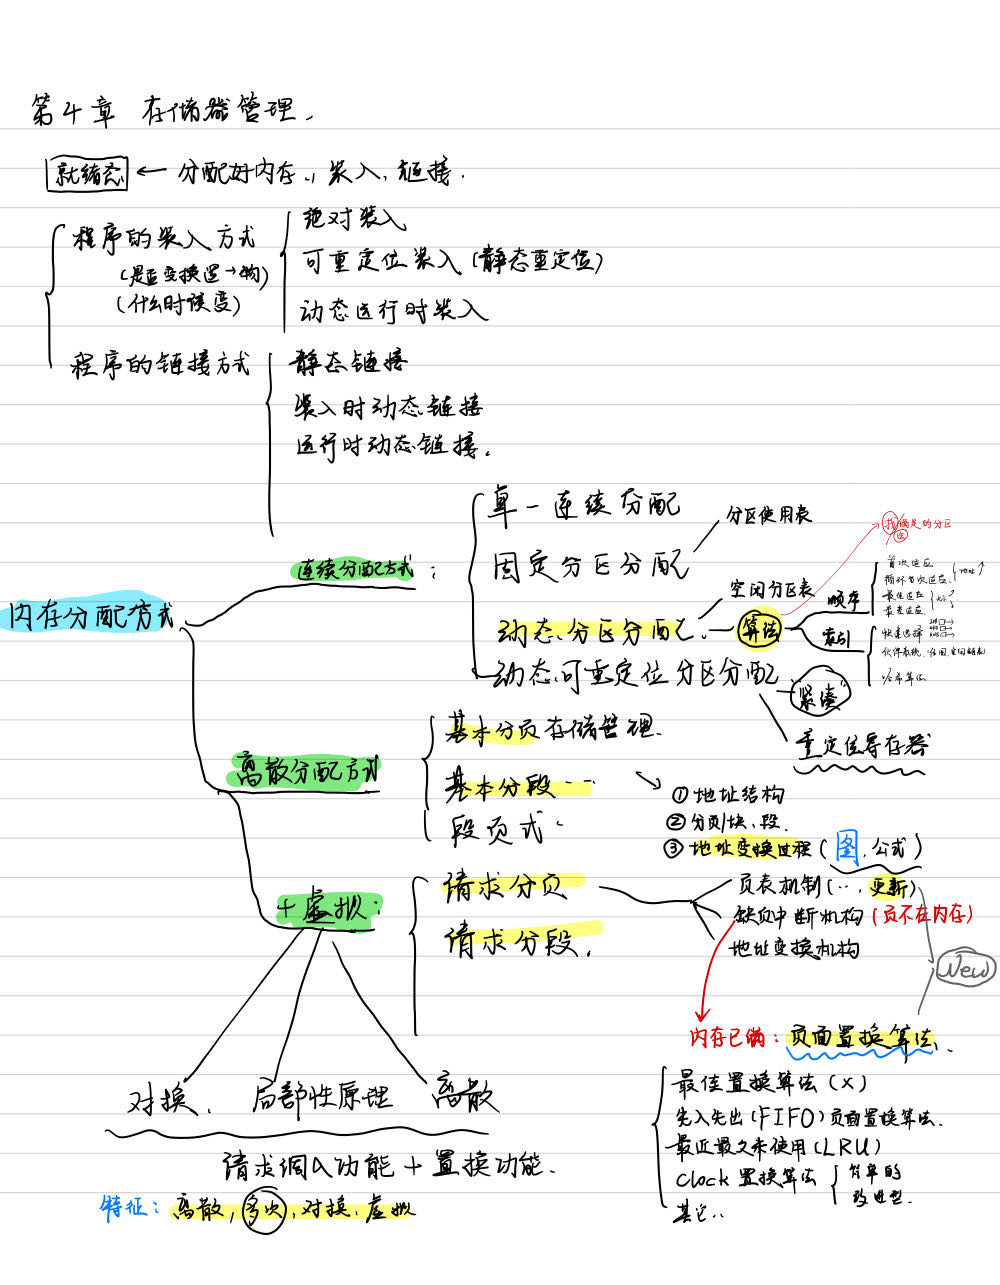 第4章 存储器管理.
就绪态 ← 分配好内存., 装入, 链接.
程序的装入方式
(是否变换逻→物)
(什么时候变)
绝对装入
可重定位装入(静态重定位)
动态运行时装入
程序的链接方式
静态链接
装入时动态链接
运行时动态链接.
内存分配方式
连续分配方式:
单一连续分配
固定分区分配
分区使用表
动态分区分配.
空闲分区表
算法
找满足的分区
顺序
首次适应
循环首次适应.
地址↑
最佳适应
最坏适应.
大小
索引
快速选择
伙伴系统.
哈希算法
动态可重定位分区分配
"紧凑"
重定位寄存器
离散分配方式
基本分页存储管理.
基本分段……
段页式.
① 地址结构
② 分页/块、段.
③ 地址变换过程(图.公式)
+虚拟:
请求分页
请求分段.
页表机制(…, 更新)
缺页中断机构(页不在内存)
地址变换机构
New
内存已满: 页面置换算法.
最佳置换算法(×)
先入先出(FIFO)页面置换算法.
最近最久未使用(LRU)
Clock 置换算法
简单的
改进型.
其它..
对换. 局部性原理 离散
请求调入功能+置换功能.
特征: 离散, 多次, 对换, 虚拟